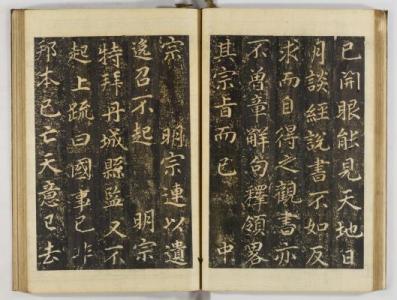 已開眼能見天地日
月談經說書不如反
求而自得之觀書亦
不曾章解句釋領畧
其宗旨而已　中
宗　明宗連以遺
逸召不起　明宗
特拜丹城縣監又不
起上疏曰國事已非
邦本已亡天意已去